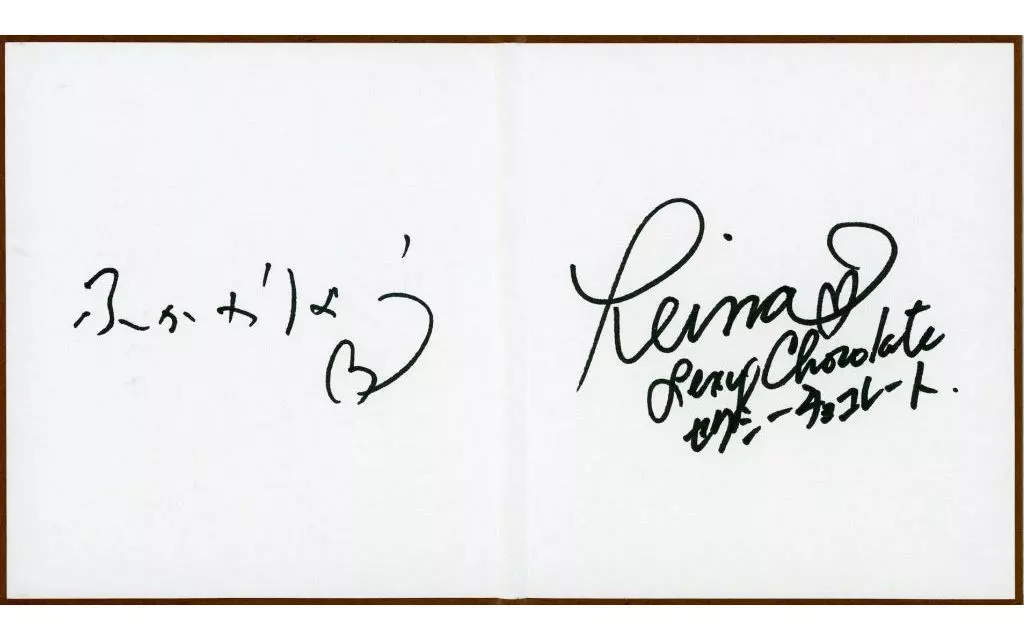 ふかわりょう
Reina
Sexy Chocolate
セクシーチョコレート.